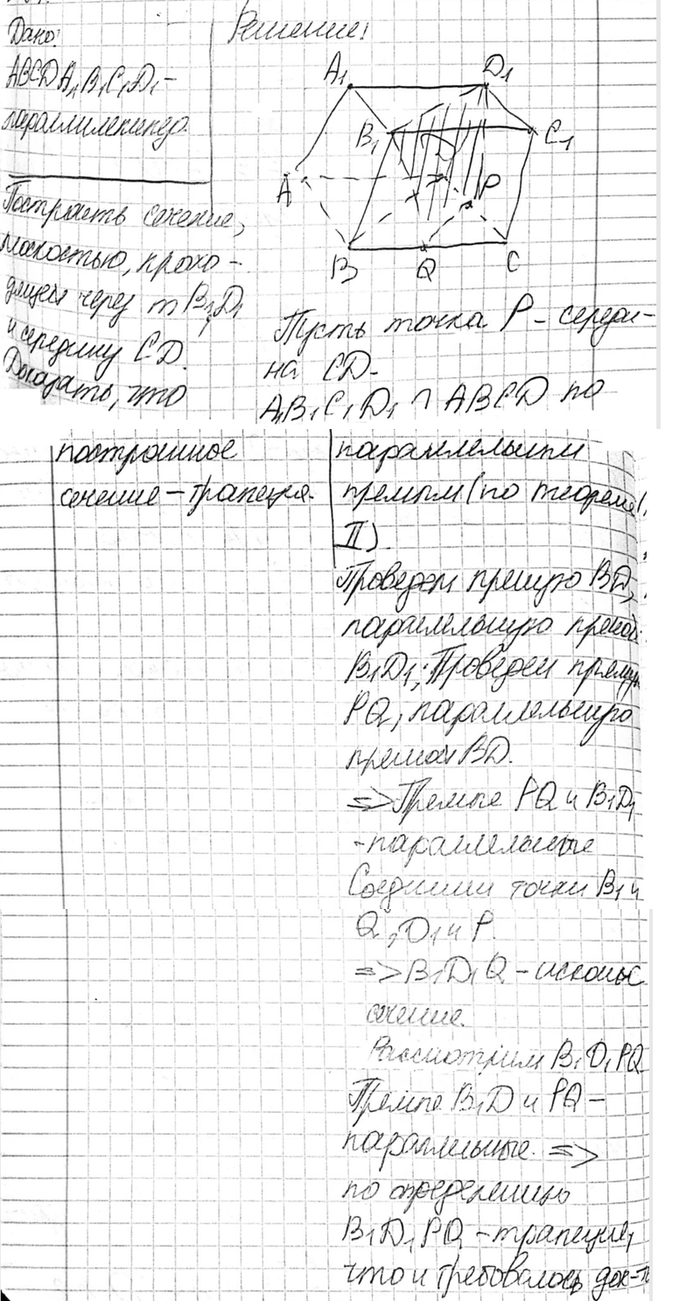 Дано:
Решение:
ABCDA₁B₁C₁D₁ –
параллилепипед.
A₁
D₁
B₁
C₁
D
A
P
B
Q
C
Построить сечение,
плоскостью, прохо-
дящей через т B₁, D₁
и середину CD.
Доказать, что
Пусть точка P – середи-
на CD.
A₁B₁C₁D₁ ∩ ABCD по
построиное
сечение – трапеция.
параллельным
прямым (по теореме
II).
Проведем прямую BD,
параллельную прямой
B₁D₁; Проведем прямую
PQ, параллельную
прямой BD.
=> Прямые PQ и B₁D₁
-параллельные
Соединим точки B₁ и
Q, D₁ и P.
=> B₁D₁Q – искомое
сечение.
Рассмотрим B₁D₁PQ
Прямые B₁D и PQ –
параллельные. =>
по определению
B₁D₁PQ – трапеция,
что и требовалось док-ть